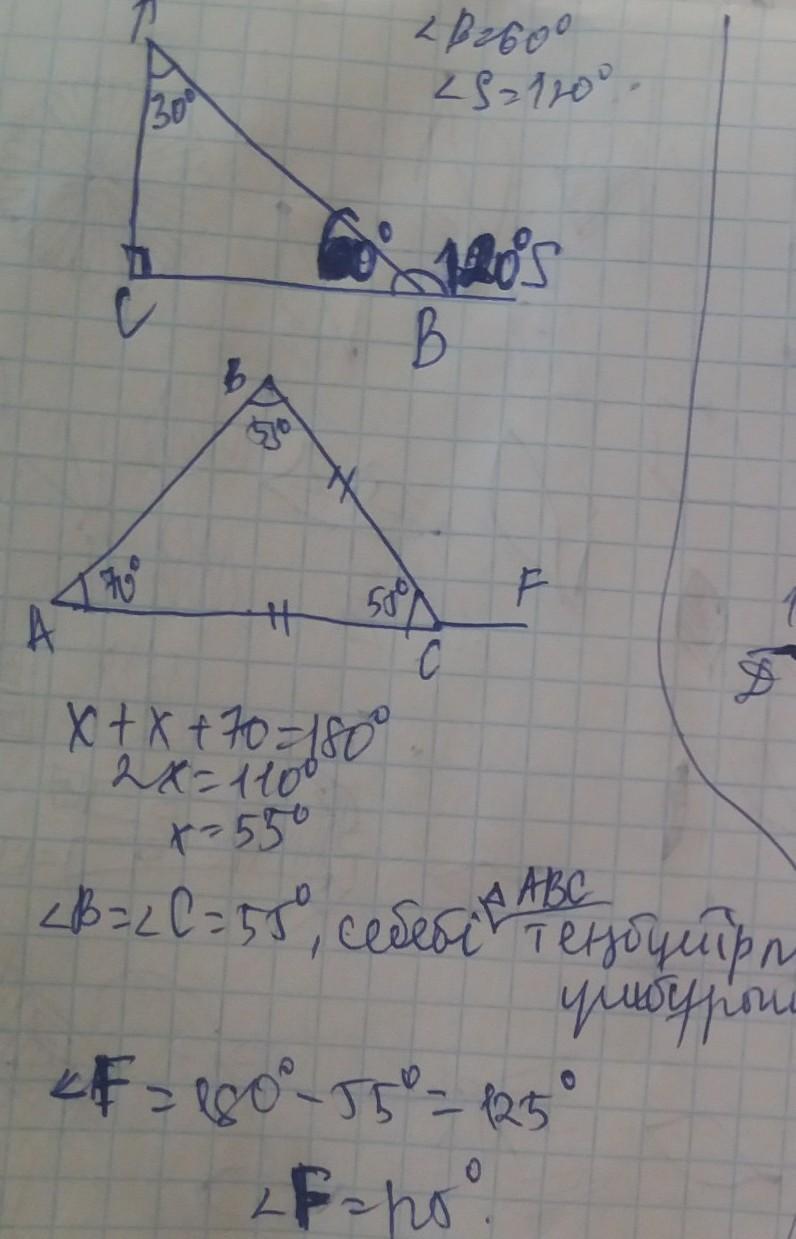 ∠B=60°
∠S=120°
30°
60° 120° S
C
B
B
55°
70° 55° F
A
C
x+x+70=180°
2x=110°
x=55°
∠B=∠C=55°, себебі △ABC
теңбүйірл
үшбұрыш
∠F=180°-55°=125°
∠F=125°.